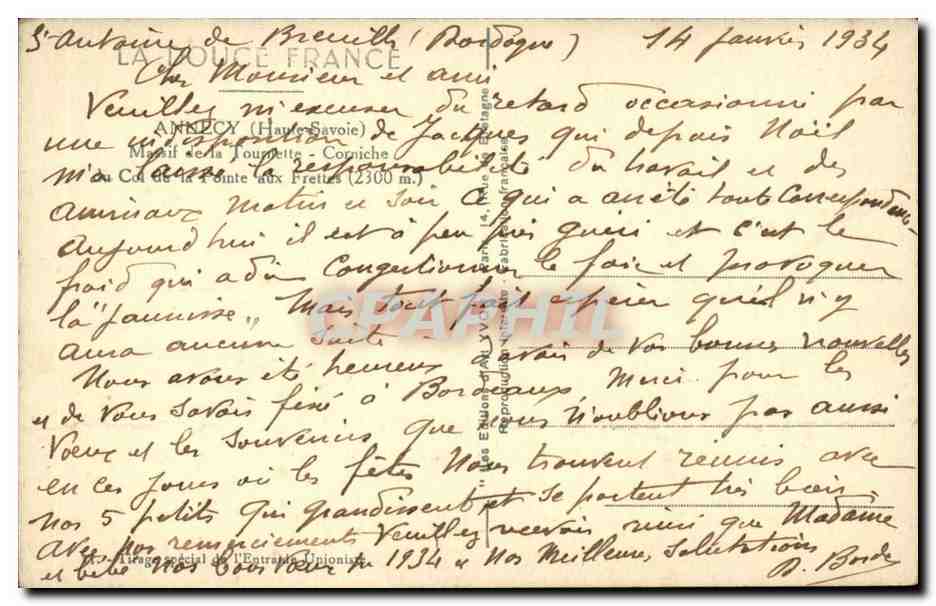 St Antoine de Breuilh (Dordogne) 14 Janvier 1934
LA DOUCE FRANCE
Cher Monsieur et ami
Veuillez m'excuser du retard occasionné par
ANNECY (Haute-Savoie)
une indisposition de Jacques qui depuis Noël
Massif de la Tournette - Corniche
m'a laissé la responsabilité du travail et des
du Col de la Pointe aux Frettes (2300 m.)
animaux matin et soir ce qui a arrêté toute correspondance.
Aujourd'hui il est à peu près guéri et c'est le
froid qui a dû congestionner le foie et provoquer
la "jaunisse". Mais tout fait espérer qu'il n'y
CPAPHIL
aura aucune suite.
Nous avons été heureux d'avoir de vos bonnes nouvelles
et de vous savoir fixé à Bordeaux Merci pour les
Voeux et les souvenirs que nous n'oublions pas aussi
en ces jours où les fêtes nous trouvent réunis avec
nos 5 petits qui grandissent et se portent très bien.
Avec nos remerciements Veuillez recevoir ainsi que Madame
Tirage spécial de l'Entr'aide Unioniste
et bébé nos bons voeux 1934 nos Meilleures Salutations
Les Editions d'Art YVON Paris, 14, Rue de Bretagne
Reproduction interdite - Fabrication française